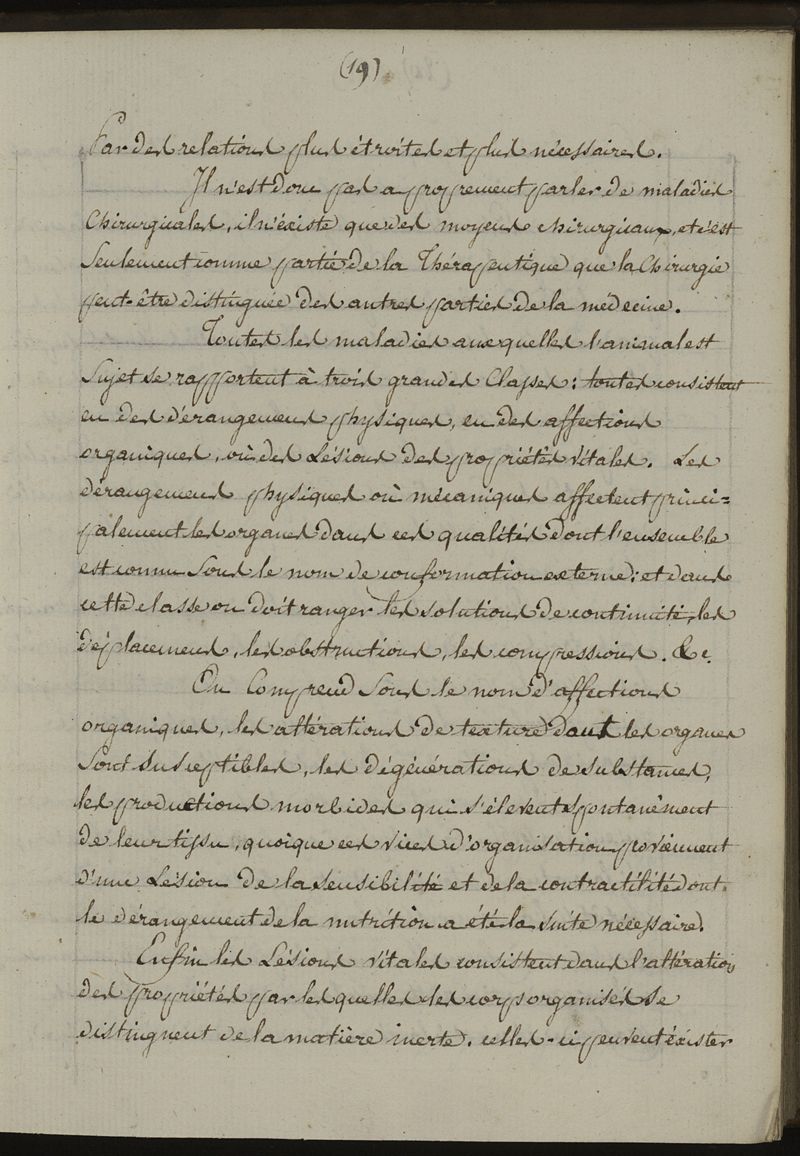 (19)
Par des relations plus étroites et plus nécessaires.
Il n'est donc pas a proprement parler de maladies
Chirurgicales, il n'éxiste que des moyens chirurgicaux, et c'est
Seulement comme partie de la Thérapeutique que la Chirurgie
peut-être distinguée des autres parties de la médecine.
Toutes les maladies auxquelles l'animal est
Sujet se rapportent à trois grandes Classes: toutes consistent
en des dérangemens physiques, en des affections
organiques, où des Lésions des propriétés vitales. Les
dérangemens physiques où mécaniques affectent princi=
palement les organes dans ces qualités dont l'ensemble
est connu Sous le nom de conformation externe: et dans
cette classe on doit ranger les solutions de continuité, les
déplacemens, les obstructions, les compressions. &c.
On Comprend Sous le nom d'affections
organiques, les altérations de texture dont les organes
Sont Susceptibles, les dégénérations de substances,
les productions morbides qui s'élevent spontanément
de leur tissu, quoique ces vices d'organisation proviennent
d'une Lésion de la sensibilité et de la contractilité dont
le dérangement de la nutrition a été la suite nécessaire.
Enfin les Lésions vitales consistent dans l'altération
des propriétés par lesquelles les corps organisés se
distinguent de la matière inerte. celles-ci peuvent éxister